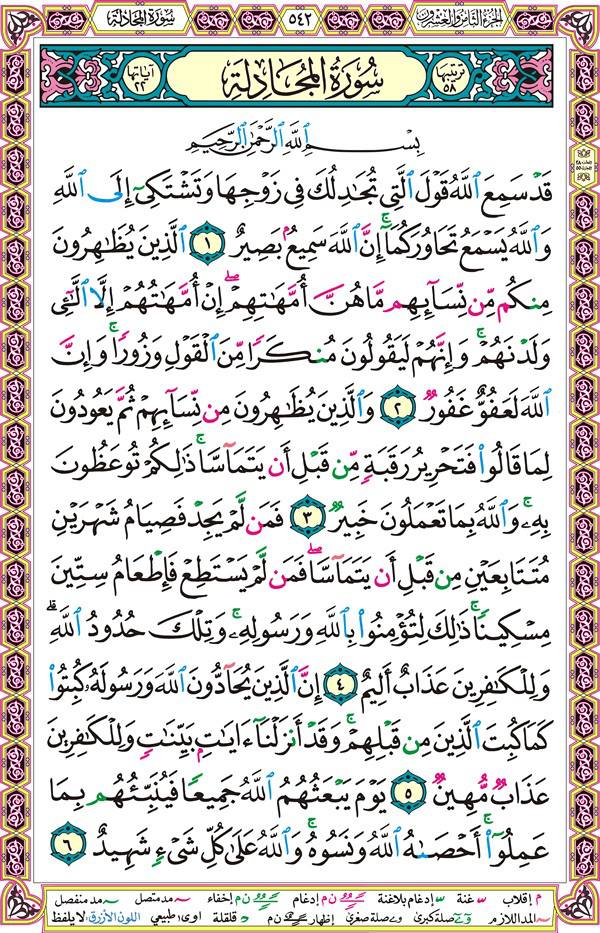 الجزء الثامن والعشرون
٥٤٢
سورة المجادلة
ترتيبها
٥٨
سُورَةُ المُجَادلَةِ
آياتها
٢٢
بِسْمِ ٱللَّهِ ٱلرَّحْمَٰنِ ٱلرَّحِيمِ
قَدْ سَمِعَ ٱللَّهُ قَوْلَ ٱلَّتِي تُجَٰدِلُكَ فِي زَوْجِهَا وَتَشْتَكِيٓ إِلَى ٱللَّهِ
وَٱللَّهُ يَسْمَعُ تَحَاوُرَكُمَآ ۚ إِنَّ ٱللَّهَ سَمِيعُۢ بَصِيرٌ ١ ٱلَّذِينَ يُظَٰهِرُونَ
مِنكُم مِّن نِّسَآئِهِم مَّا هُنَّ أُمَّهَٰتِهِمْ ۖ إِنْ أُمَّهَٰتُهُمْ إِلَّا ٱلَّٰٓـِٔي
وَلَدْنَهُمْ ۚ وَإِنَّهُمْ لَيَقُولُونَ مُنكَرًا مِّنَ ٱلْقَوْلِ وَزُورًا ۚ وَإِنَّ
ٱللَّهَ لَعَفُوٌّ غَفُورٌ ٢ وَٱلَّذِينَ يُظَٰهِرُونَ مِن نِّسَآئِهِمْ ثُمَّ يَعُودُونَ
لِمَا قَالُوا۟ فَتَحْرِيرُ رَقَبَةٍ مِّن قَبْلِ أَن يَتَمَآسَّا ۚ ذَٰلِكُمْ تُوعَظُونَ
بِهِۦ ۚ وَٱللَّهُ بِمَا تَعْمَلُونَ خَبِيرٌ ٣ فَمَن لَّمْ يَجِدْ فَصِيَامُ شَهْرَيْنِ
مُتَتَابِعَيْنِ مِن قَبْلِ أَن يَتَمَآسَّا ۖ فَمَن لَّمْ يَسْتَطِعْ فَإِطْعَامُ سِتِّينَ
مِسْكِينًا ۚ ذَٰلِكَ لِتُؤْمِنُوا۟ بِٱللَّهِ وَرَسُولِهِۦ ۚ وَتِلْكَ حُدُودُ ٱللَّهِ ۗ
وَلِلْكَٰفِرِينَ عَذَابٌ أَلِيمٌ ٤ إِنَّ ٱلَّذِينَ يُحَآدُّونَ ٱللَّهَ وَرَسُولَهُۥ كُبِتُوا۟
كَمَا كُبِتَ ٱلَّذِينَ مِن قَبْلِهِمْ ۚ وَقَدْ أَنزَلْنَآ ءَايَٰتٍۭ بَيِّنَٰتٍ ۚ وَلِلْكَٰفِرِينَ
عَذَابٌ مُّهِينٌ ٥ يَوْمَ يَبْعَثُهُمُ ٱللَّهُ جَمِيعًا فَيُنَبِّئُهُم بِمَا
عَمِلُوٓا۟ ۚ أَحْصَىٰهُ ٱللَّهُ وَنَسُوهُ ۚ وَٱللَّهُ عَلَىٰ كُلِّ شَىْءٍ شَهِيدٌ ٦
م إقلاب س غنة س إدغام بلاغنة ن م إدغام ن م إخفاء ~ مد متصل ~ مد منفصل
~ المد اللازم و ے صلة كبرى و ے صلة صغرى إظهار ن م د قلقلة اوى طبيعي اللون الأزرق: لا يلفظ